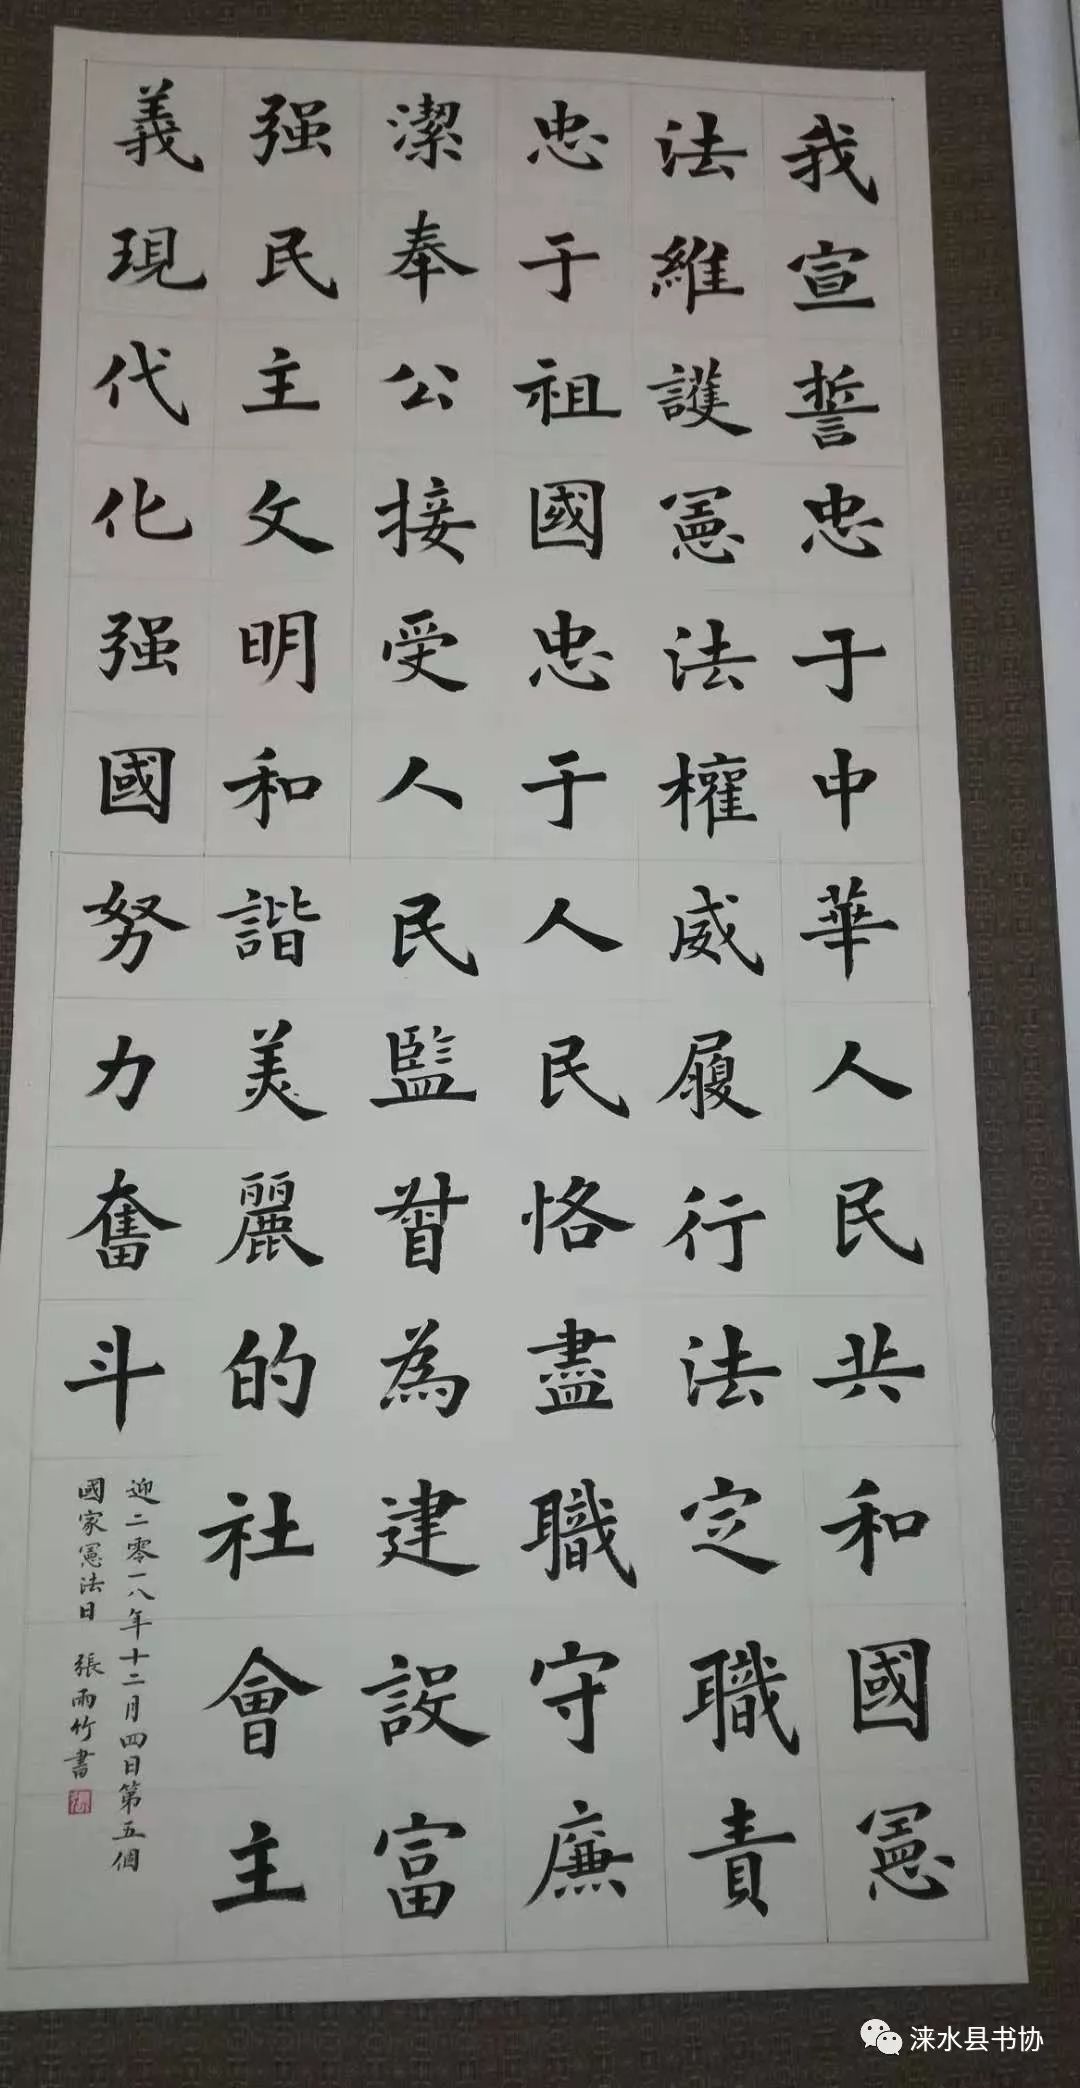 我宣誓忠于中華人民共和國憲
法維護憲法權威履行法定職責
忠于祖國忠于人民恪盡職守廉
潔奉公接受人民監督為建設富
强民主文明和諧美麗的社會主
義現代化强國努力奮斗
迎二零一八年十二月四日第五個
國家憲法日 張雨竹書
涞水县书协